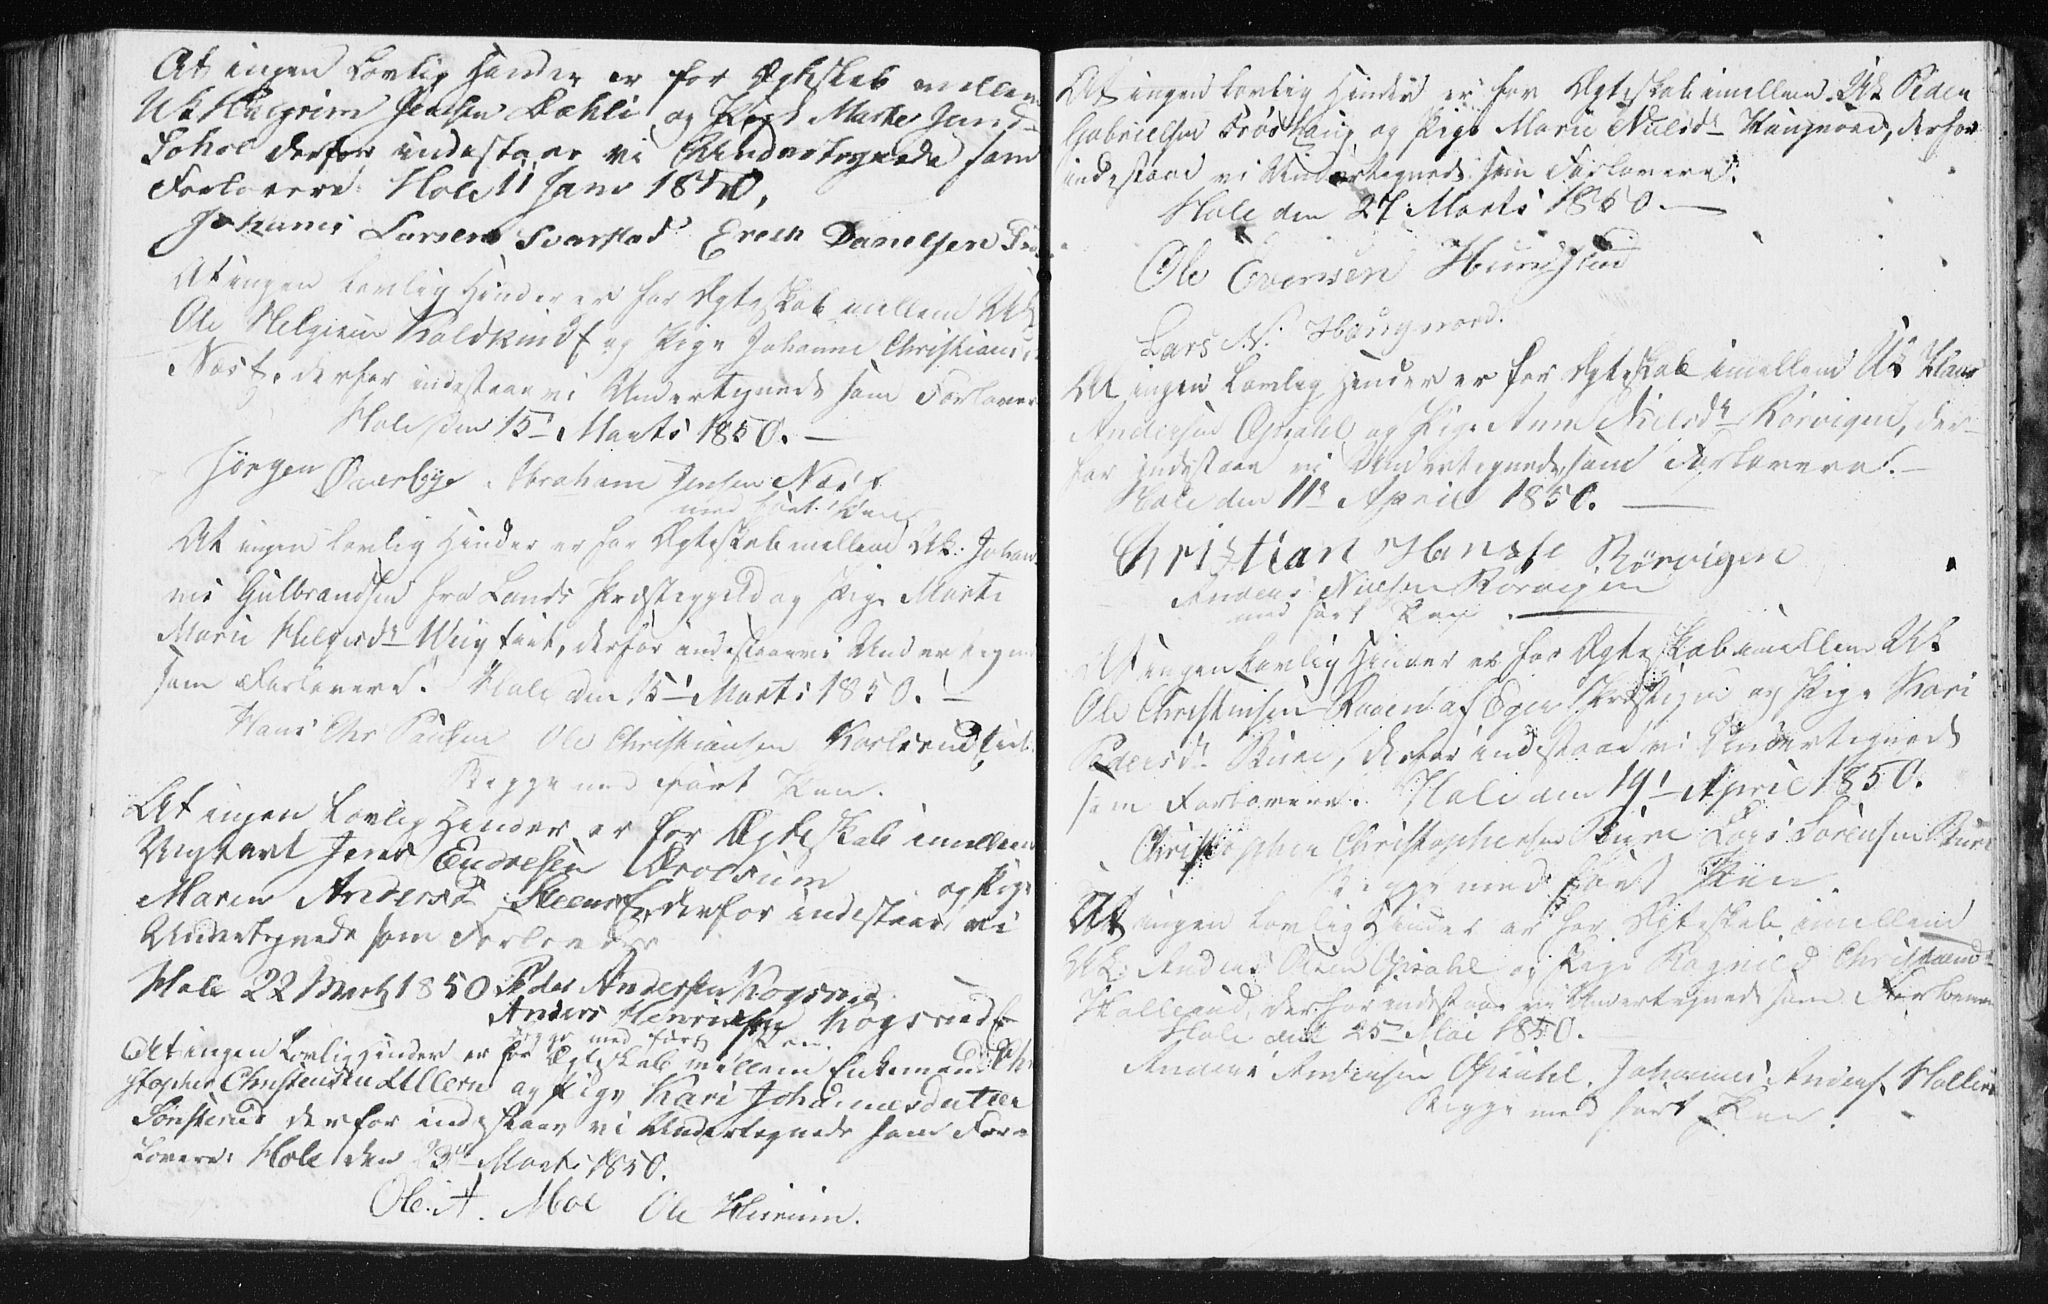 At ingen Lovlig Hinder er for Ægteskab mellem
Uk Halgrim Jensen Dæhli og Pige Marte Jens
derfor indestaar vi Undertegnede som
Forlovere. Hole 11 Janr 1850.
Johanis Larsen Svarstad Erich Danelsen
At ingen Lovlig Hinder er for Ægteskab mellem Uk
Ole Helgesen og Pige Johanne Christians
Næs, derfor indestaar vi Undertegnede som Forlover
Hole den 15 Marts 1850. —
Jørgen Øverbye. Abraham Jensen Næs
med ført Pen
At ingen Lovlig Hinder er for Ægteskab mellem Uk. Johan
nes Gulbrandsen fra Lands Præstegjeld og Pige Marte
Marie Helgesdr derfor indestaar vi Undertegn
som Forlovere. Hole den 15 Marts 1850. —
Hans Chr Paulsen Ole Christiansen
Begge med ført Pen.
At ingen Lovlig Hinder er for Ægteskab imellem
Ungkarl Jens Endresen og Pige
Maren Andersd derfor indestaar vi
Undertegnede som Forlovere
Hole 22 Marts 1850 Peder Andersen Kogsrud
Anders Henriksen Kogsrud
Begge med ført Pen.
At ingen Lovlig Hinder er for Ægteskab mellem Enkemand Chri
stopher Christensen Ullern og Pige Kari Johannesdatter
Sønsterud derfor indestaar vi Undertegnede som For-
lovere. Hole den 23 Marts 1850.
Ole. A. Moe Ole
At ingen Lovlig Hinder er for Ægteskab imellem Uk Peder
Gabrielsen Frøshaug og Pige Marie Nielsdr Haugnord, derfor
indestaar vi Undertegnede som Forlovere.
Hole den 27 Marts 1850. —
Ole Evensen
Lars N. Haugnord.
At ingen Lovlig Hinder er for Ægteskab imellem Uk Hans
Andersen Opsahl og Pige Anne Nielsdr Rørvigen, der-
for indestaar vi Undertegnede som Forlovere. —
Hole den 11 April 1850. —
Christian Hansen Rørvigen
Anders Nielsen Rørvigen
med ført Pen. —
At ingen Lovlig Hinder er for Ægteskab imellem Uk
Ole Christensen af Eger Præstegjeld og Pige Kari
Pedersdr Bure, derfor indestaar vi Undertegnede
som Forlovere. Hole den 19 April 1850.
Christopher Christophersen Bure Lars Sørensen Bure
Begge med ført Pen.
At ingen Lovlig Hinder er for Ægteskab imellem
Uk. Anders Olsen Opsahl og Pige Ragnild Christiansd
derfor indestaar vi Undertegnede som Forlovere
Hole den 25 Mai 1850. —
Anders Andersen Opsahl. Johannes Anders.
Begge med ført Pen.